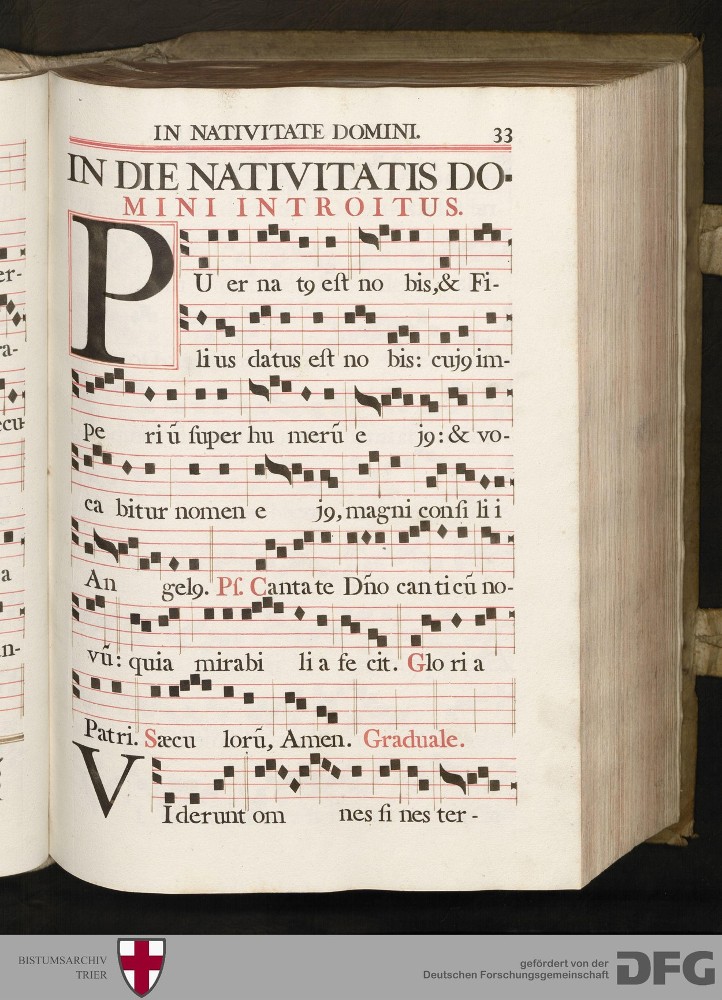 IN NATIVITATE DOMINI. 33
IN DIE NATIVITATIS DO-
MINI INTROITUS.
PU er na tꝰ eſt no bis,& Fi-
li us datus eſt no bis: cujꝰ im-
pe ri ũ ſuper hu merũ e jꝰ: & vo-
ca bitur nomen e jꝰ, magni conſi li i
An gelꝰ. Pſ. Canta te Dño can ti cũ no-
vũ: quia mirabi li a fe cit. Glo ri a
Patri. Sæcu lorũ, Amen. Graduale.
VI derunt om nes fi nes ter -
er-
ra-
ecu-
a
in-
BISTUMSARCHIV
TRIER
gefördert von der
Deutschen Forschungsgemeinschaft
DFG